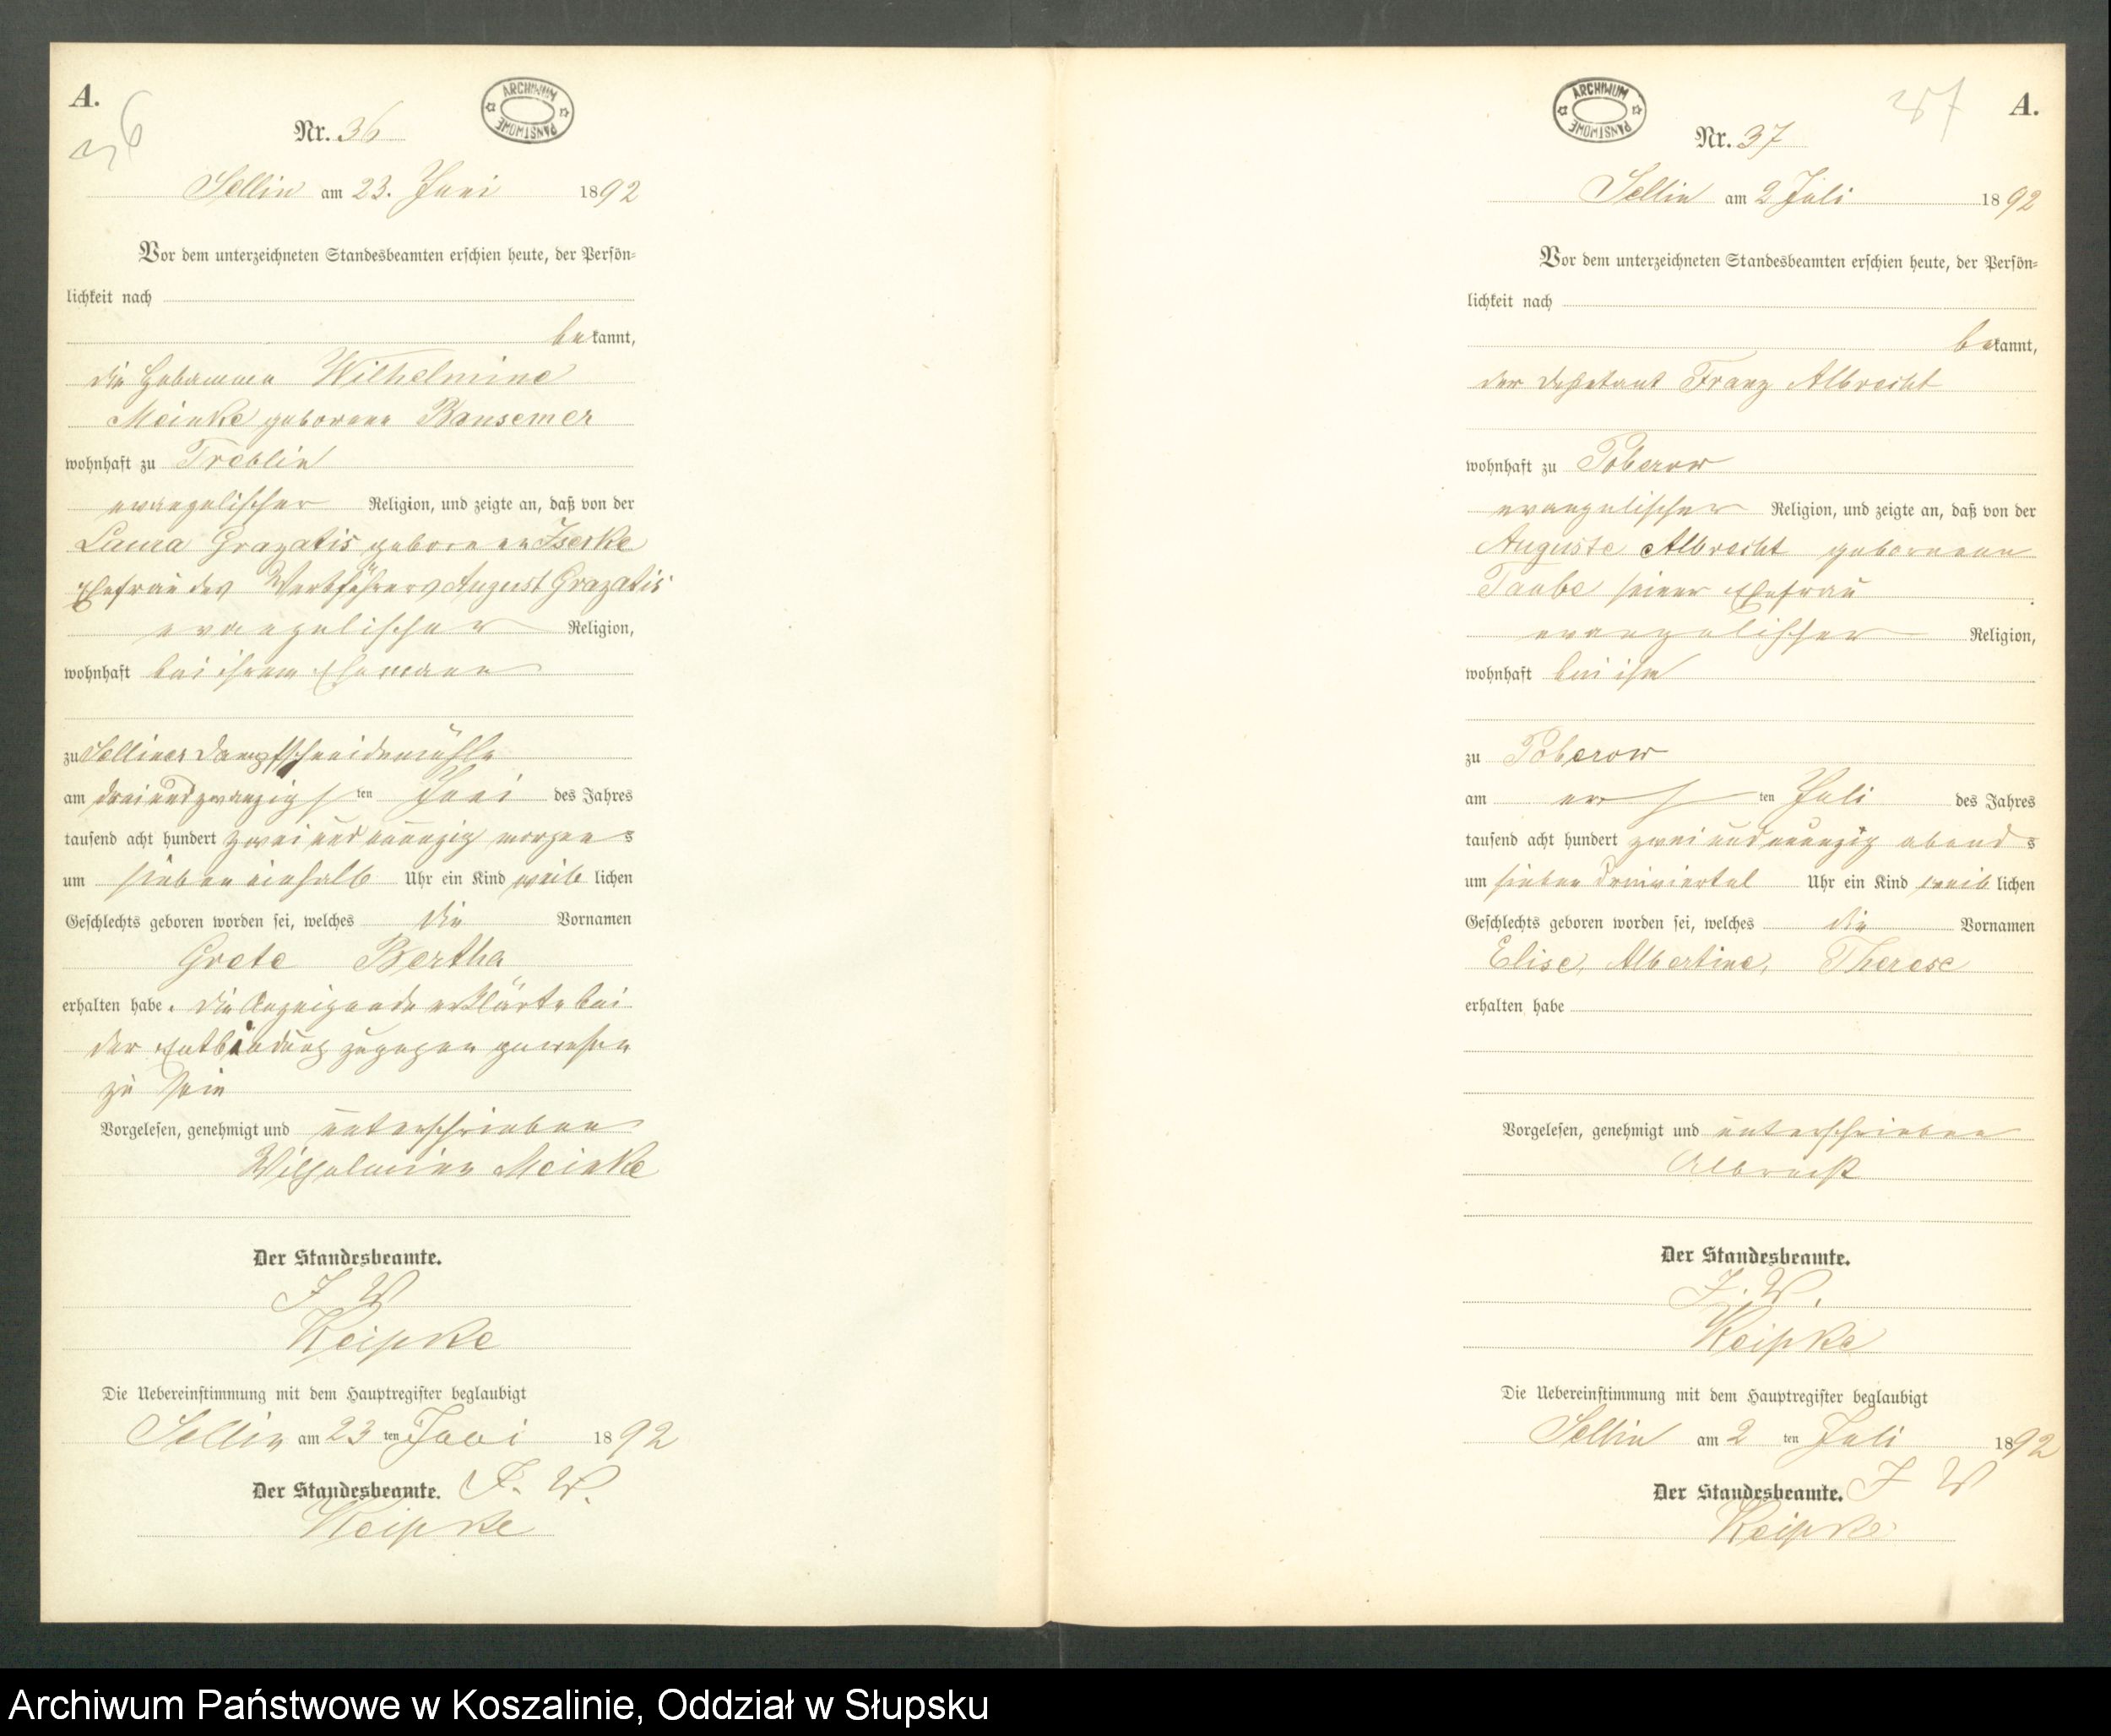 A.
36
Nr. 36
ARCHIWUM PAŃSTWOWE
Sellin am 23. Juni 1892
Vor dem unterzeichneten Standesbeamten erschien heute, der Persön-
lichkeit nach
bekannt,
die Hebamme Wilhelmine
Meinke geborene Bansemer
wohnhaft zu Treblin
evangelischer Religion, und zeigte an, daß von der
Laura Grazatis geborenen Iserke
Ehefrau des Werkführers August Grazatis
evangelischer Religion,
wohnhaft bei ihrem Ehemann
zu Selliner Dampfschneidemühle
am dreiundzwanzigsten Juni des Jahres
tausend acht hundert zwei und neunzig morgens
um sieben einhalb Uhr ein Kind weiblichen
Geschlechts geboren worden sei, welches die Vornamen
Grete Bertha
erhalten habe. die Anzeigende erklärte bei
der Entbindung zugegen gewesen
zu sein
Vorgelesen, genehmigt und unterschrieben
Wilhelmine Meinke
Der Standesbeamte.
J W
Keipke
Die Uebereinstimmung mit dem Hauptregister beglaubigt
Sellin am 23 ten Juni 1892
Der Standesbeamte. J. W.
Keipke
37
A.
Nr. 37
ARCHIWUM PAŃSTWOWE
Sellin am 2 Juli 1892
Vor dem unterzeichneten Standesbeamten erschien heute, der Persön-
lichkeit nach
bekannt,
der Deputant Franz Albrecht
wohnhaft zu Poberow
evangelischer Religion, und zeigte an, daß von der
Auguste Albrecht geborenen
Taube seiner Ehefrau
evangelischer Religion,
wohnhaft bei ihm
zu Poberow
am ersten Juli des Jahres
tausend acht hundert zwei und neunzig abends
um sieben dreiviertel Uhr ein Kind weiblichen
Geschlechts geboren worden sei, welches die Vornamen
Elise, Albertine, Therese
erhalten habe
Vorgelesen, genehmigt und unterschrieben
Albrecht
Der Standesbeamte.
J. W.
Keipke
Die Uebereinstimmung mit dem Hauptregister beglaubigt
Sellin am 2 ten Juli 1892
Der Standesbeamte. J W
Keipke
Archiwum Państwowe w Koszalinie, Oddział w Słupsku